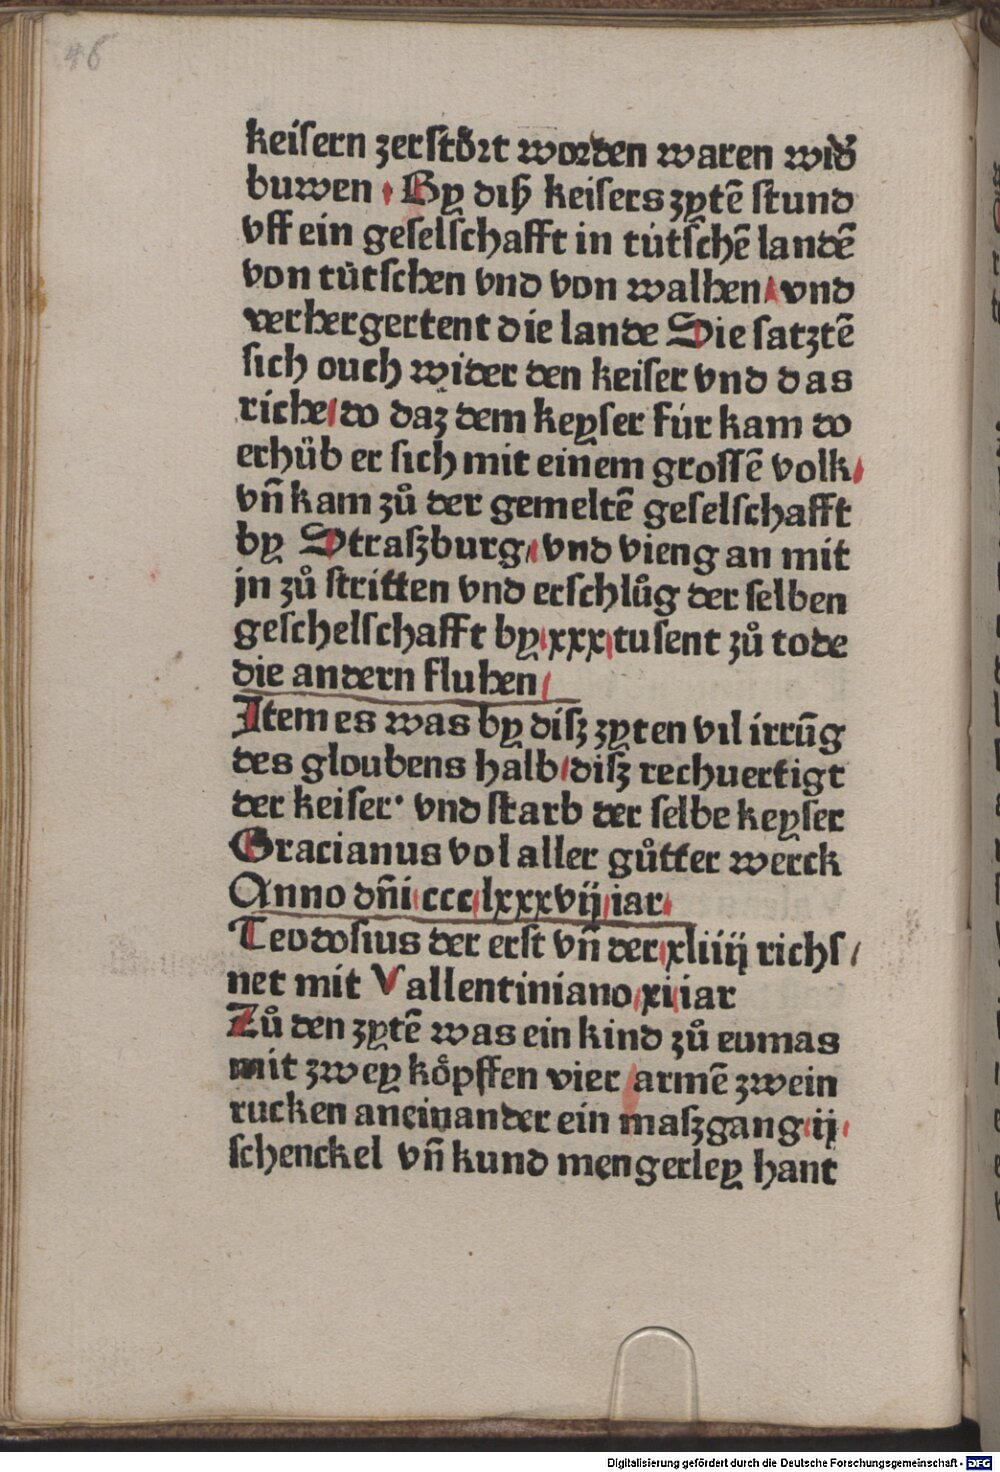 46
keisern zerstoͤrt worden waren wid̕
buwen · By diß keisers zytē stund
vff ein geselschafft in tútschē landē
von tútschen vnd von walhen / vnd
verhergertent die lande Die satztē
sich ouch wider den keiser vnd das
riche / do daz dem keyser fúr kam do
erhüb er sich mit einem grossē volk /
vñ kam zů der gemeltē geselschafft
by Straszburg / vnd vieng an mit
jn zů stritten vnd erschlůg der selben
geschelschafft by / xxx / tusent zů tode
die andern fluhen /
Item es was by disz zyten vil irrūg
des gloubens halb / disz rechuertigt
der keiser · vnd starb der selbe keyser
Gracianus vol aller gůtter werck
Anno dñi / ccc / lxxxvij / iar /
Teodosius der erst vñ der / xliiij richs /
net mit Vallentiniano / xi / iar
Zů den zytē was ein kind zů eumas
mit zwey koͤpffen vier armē zwein
rucken aneinander ein maszgang / ij /
schenckel vñ kund mengerley hant
Digitalisierung gefördert durch die Deutsche Forschungsgemeinschaft - DFG